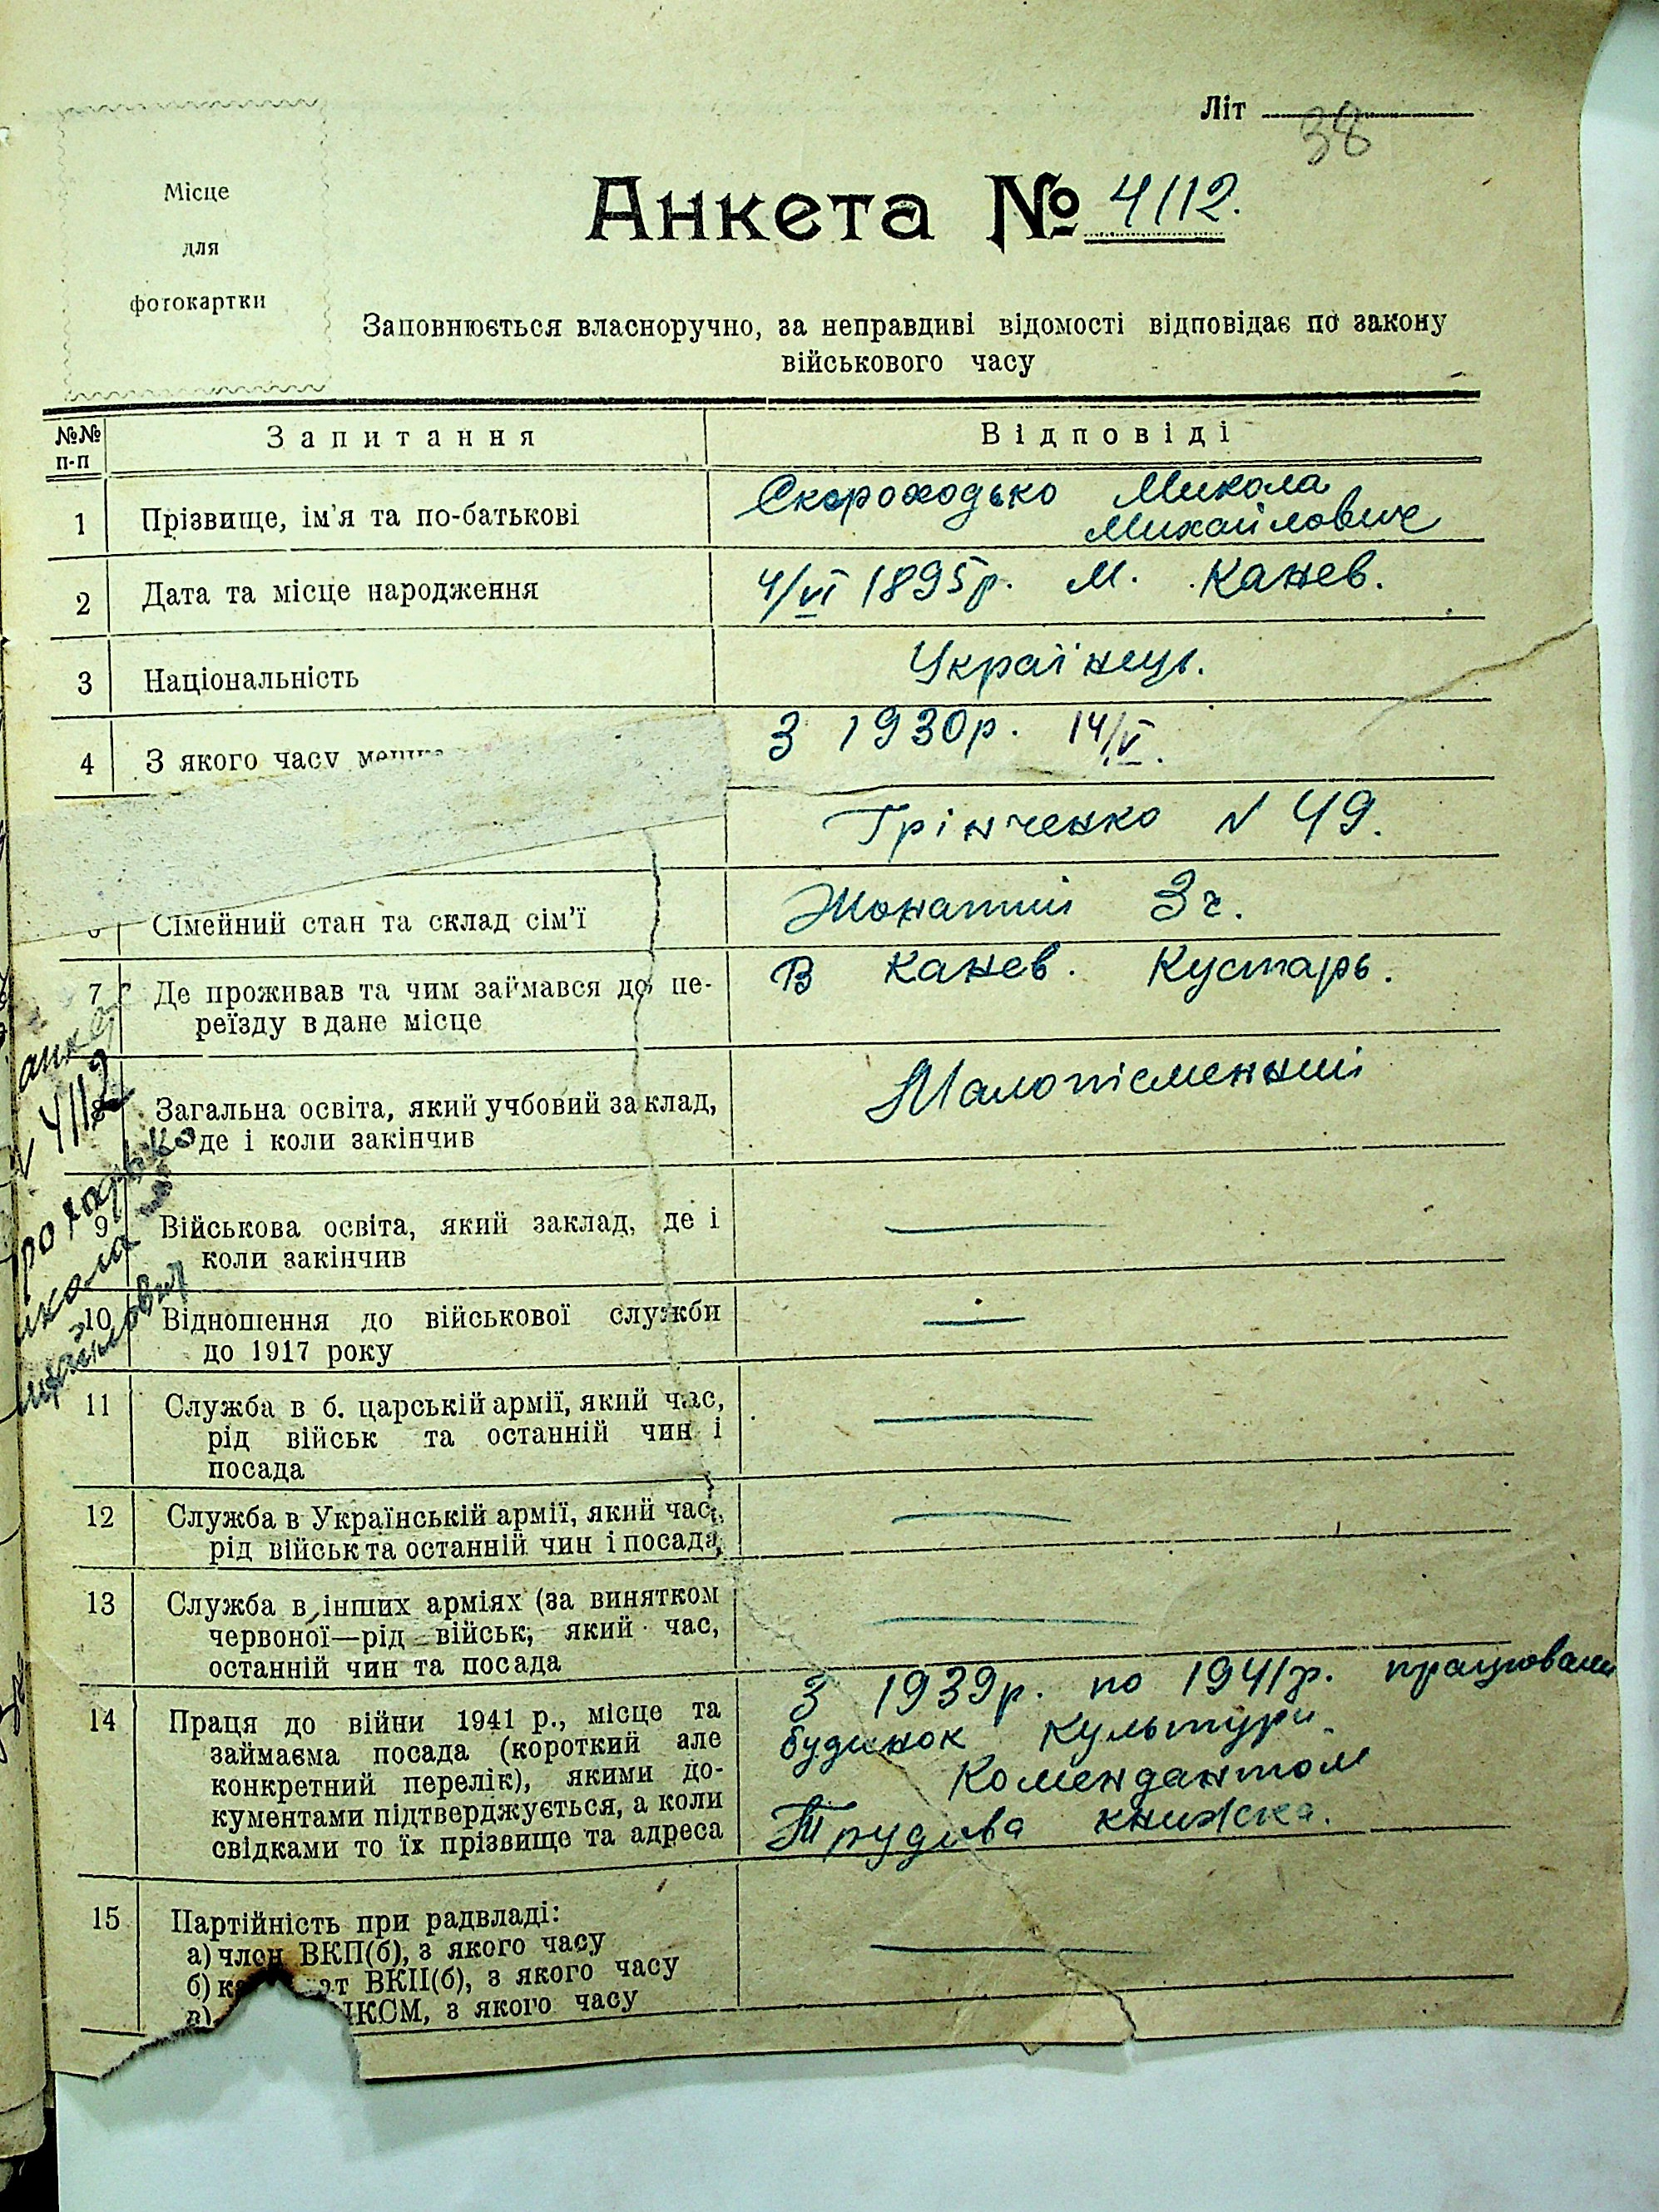 Літ
38
Місце
для
фотокартки
Анкета № 4112.
Заповнюється власноручно, за неправдиві відомості відповідає по закону
військового часу
№№ п-п Запитання Відповіді
1 Прізвище, ім'я та по-батькові Скороходько Микола
Михайлович
2 Дата та місце народження 4/VI 1895р. м. Канев.
3 Національність Українець.
4 З якого часу З 1930р. 14/V.
Грінченко № 49.
Сімейний стан та склад сім'ї Жонатий 3 ч.
7 Де проживав та чим займався до пе-
реїзду в дане місце
В Канев. Кустарь.
8 Загальна освіта, який учбовий заклад,
де і коли закінчив
Малопісменний
9 Військова освіта, який заклад, де і
коли закінчив
—
10 Відношення до військової служби
до 1917 року
—
11 Служба в б. царській армії, який час,
рід військ та останній чин і
посада
—
12 Служба в Українській армії, який час,
рід військ та останній чин і посада
—
13 Служба в інших арміях (за винятком
червоної—рід військ, який час,
останній чин та посада
—
14 Праця до війни 1941 р., місце та
займаєма посада (короткий але
конкретний перелік), якими до-
кументами підтверджується, а коли
свідками то їх прізвище та адреса
З 1939р. по 1941р.
будинок Культури.
Комендантом
Трудова книжка.
15 Партійність при радвладі:
а) член ВКП(б), з якого часу
б) ВКП(б), з якого часу
в) ЛКСМ, з якого часу
—
№ 4112